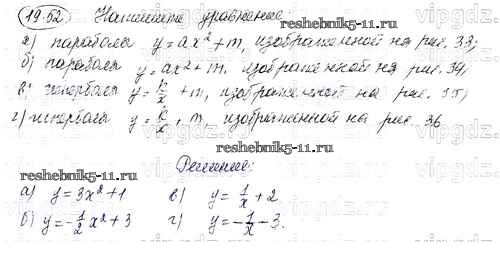 19.52. Напишите уравнение:
а) параболы y = ax² + m, изображенной на рис. 33;
б) параболы y = ax² + m, изображенной на рис. 34;
в) гиперболы y = k/x + m, изображенной на рис. 35;
г) гиперболы y = k/x + m, изображенной на рис. 36
reshebnik5-11.ru
Решение:
reshebnik5-11.ru
а) y = 3x² + 1 в) y = 1/x + 2
б) y = -1/2 x² + 3 г) y = -1/x - 3.
reshebnik5-11.ru
vipgdz.com